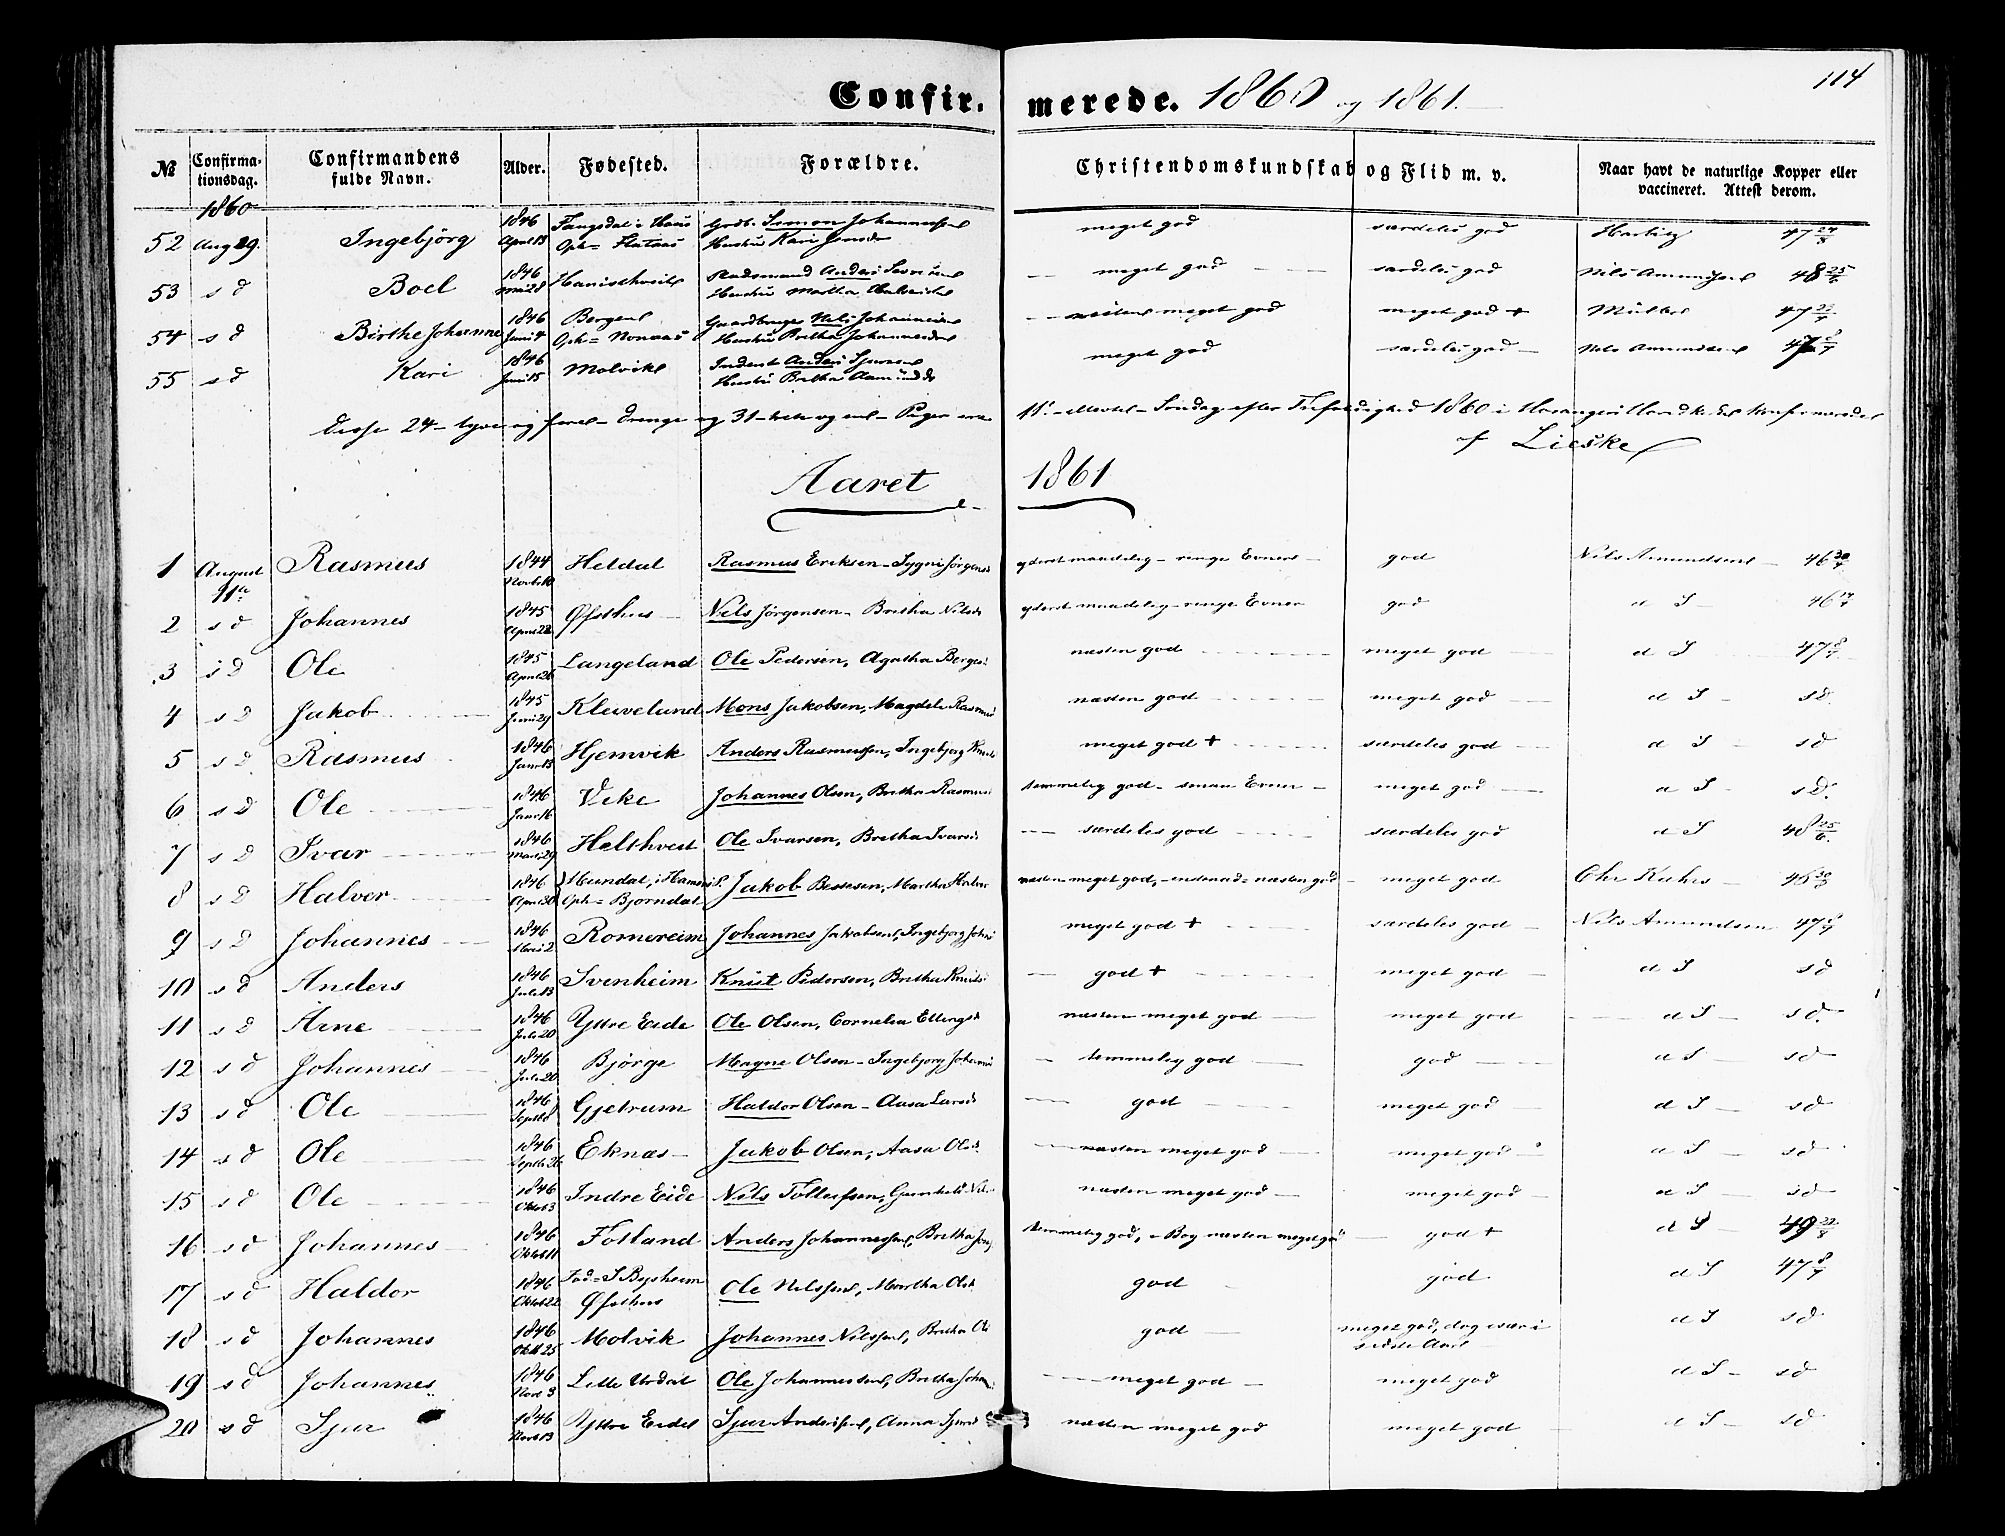 Confirmerede. 1860 og 1861.
114
№ Confirmationsdag. Confirmandens fulde Navn. Alder. Fødested. Forældre. Christendomskundskab og Flid m. v. Naar havt de naturlige Kopper eller vaccineret. Attest derom.
1860
52 Aug 29. Ingebjörg 1846 April 13 Simon Johannessen Hustrü Kari meget god særdeles god 47
53 s d Boel 1846 Anders Hustrü Martha meget god særdeles god Nils Amundsen 48 25
54 s d Birthe Johanne 1846 Juni 4 Bergen Nils Johannesen Hustrü Britha Johannesd meget god meget god + Müller 47 23
55 s d Kari 1846 Juni 15 Molvik Anders Hustrü Britha Aamundsd meget god særdeles god Nils Amundsen 47
Disse 24 – tyve og fire – Drenge og 31 – Piger ere 11te – Søndag efter Trefoldighed 1860 i confirmerede
af Lieske
Aaret 1861
1 August 11te Rasmus 1844 Novb 10 Heldal Rasmus Eriksen – Sygni Jörgensd yderst maadelig – ringe Evner – god Nils Amundsen – 46 30
2 s d Johannes 1845 April 22 Øfsthus Nils Jörgensen – Britha Nilsd yderst maadelig – ringe Evner god d S – 46
3 s d Ole 1845 April 26 Langeland Ole Pedersen, Agatha Børgesd næsten god meget god d S 47 8
4 s d Jakob 1845 Juni 29 Kleiveland Mons Jakobsen, Magdele Rasmusd næsten god meget god d S – s d
5 s d Rasmus 1846 Janr 13 Hjemvik Anders Rasmussen, Ingebjorg Knuts meget god + særdeles god d S – s d
6 s d Ole 1846 Janr 16 Veke Johannes Olsen, Britha Rasmus temmelig god – smaa Evner – meget god d S – s d
7 s d Ivar 1846 Marts 29 Helthveit Ole Ivarsen, Britha Ivarsd særdeles god særdeles god d S 48 25/6
8 s d Halvor 1846 April 30 Mundal, i Opk = Bjorndal Jakob Martha næsten meget god, næsten god meget god Chr Kahrs – 46 30
9 s d Johannes 1846 Mai 2 Romereim Johannes Jakobsen, Ingebjorg Johs meget god + særdeles god – Nils Amundsen 47
10 s d Anders 1846 Juli 13 Ivenheim Knüt Pedersen, Britha Knuts god + meget god d S s d
11 s d Arne 1846 Juli 20 Yttre Eide Ole Olsen, Cornelia Ellingsd næsten meget god meget god d S – s d
12 s d Johannes 1846 Juli 20 Bjørge Magne Olsen – Ingebjorg Johannes temmelig god god d S – s d
13 s d Ole 1846 Septb 8 Gjetrum Haldor Olsen – Aasa Larsd god meget god d S – s d
14 s d Ole 1846 Septb 26 Eknæs – Jakob Olsen, Aasa Olsd næsten meget god meget god d S – s d
15 s d Ole 1846 Oktb 3 Indre Eide Nils Tollefsen, Gunhild Nils næsten meget god – meget god d S – s d
16 s d Johannes 1846 Oktb 11 Fotland Anders Johannessen, Britha temmelig god, – Bog næsten meget god god + d S – 49 22
17 s d Haldor 1846 Oktob 22 Øfsthus Ole Nilssen, Martha Olsd god god d S 47 8
18 s d Johannes 1846 Oktb 25 Molvik Johannes Nilssen, Britha Ols god meget god, dog især i sidste Aar d S s d
19 s d Johannes 1846 Novb 3 Lille Urdal Ole Johannessen, Britha Johan meget god – meget god d S – s d
20 s d Sjur 1846 Novb 13 Yttre Eide Sjur Anderssen, Anna Sjursd næsten meget god meget god d S – s d